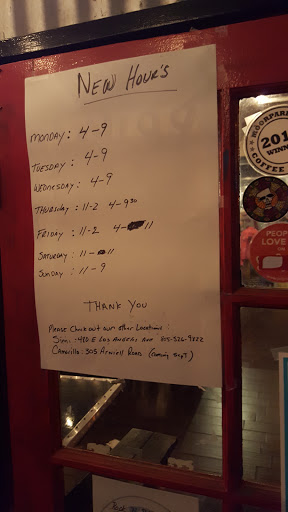 New Hour's
Monday: 4-9
Tuesday: 4-9
Wednesday: 4-9
Thursday: 11-2 4-9³⁰
Friday: 11-2 4-11
Saturday: 11-11
Sunday: 11-9
Thank You
Please Check out our other Locations:
Simi: 480 E Los Angeles Ave 805-526-9822
Camarillo: 305 Arneill Road (coming Sept)
MOORPARK
201
WINN
COFFEE
PEOP
LOVE